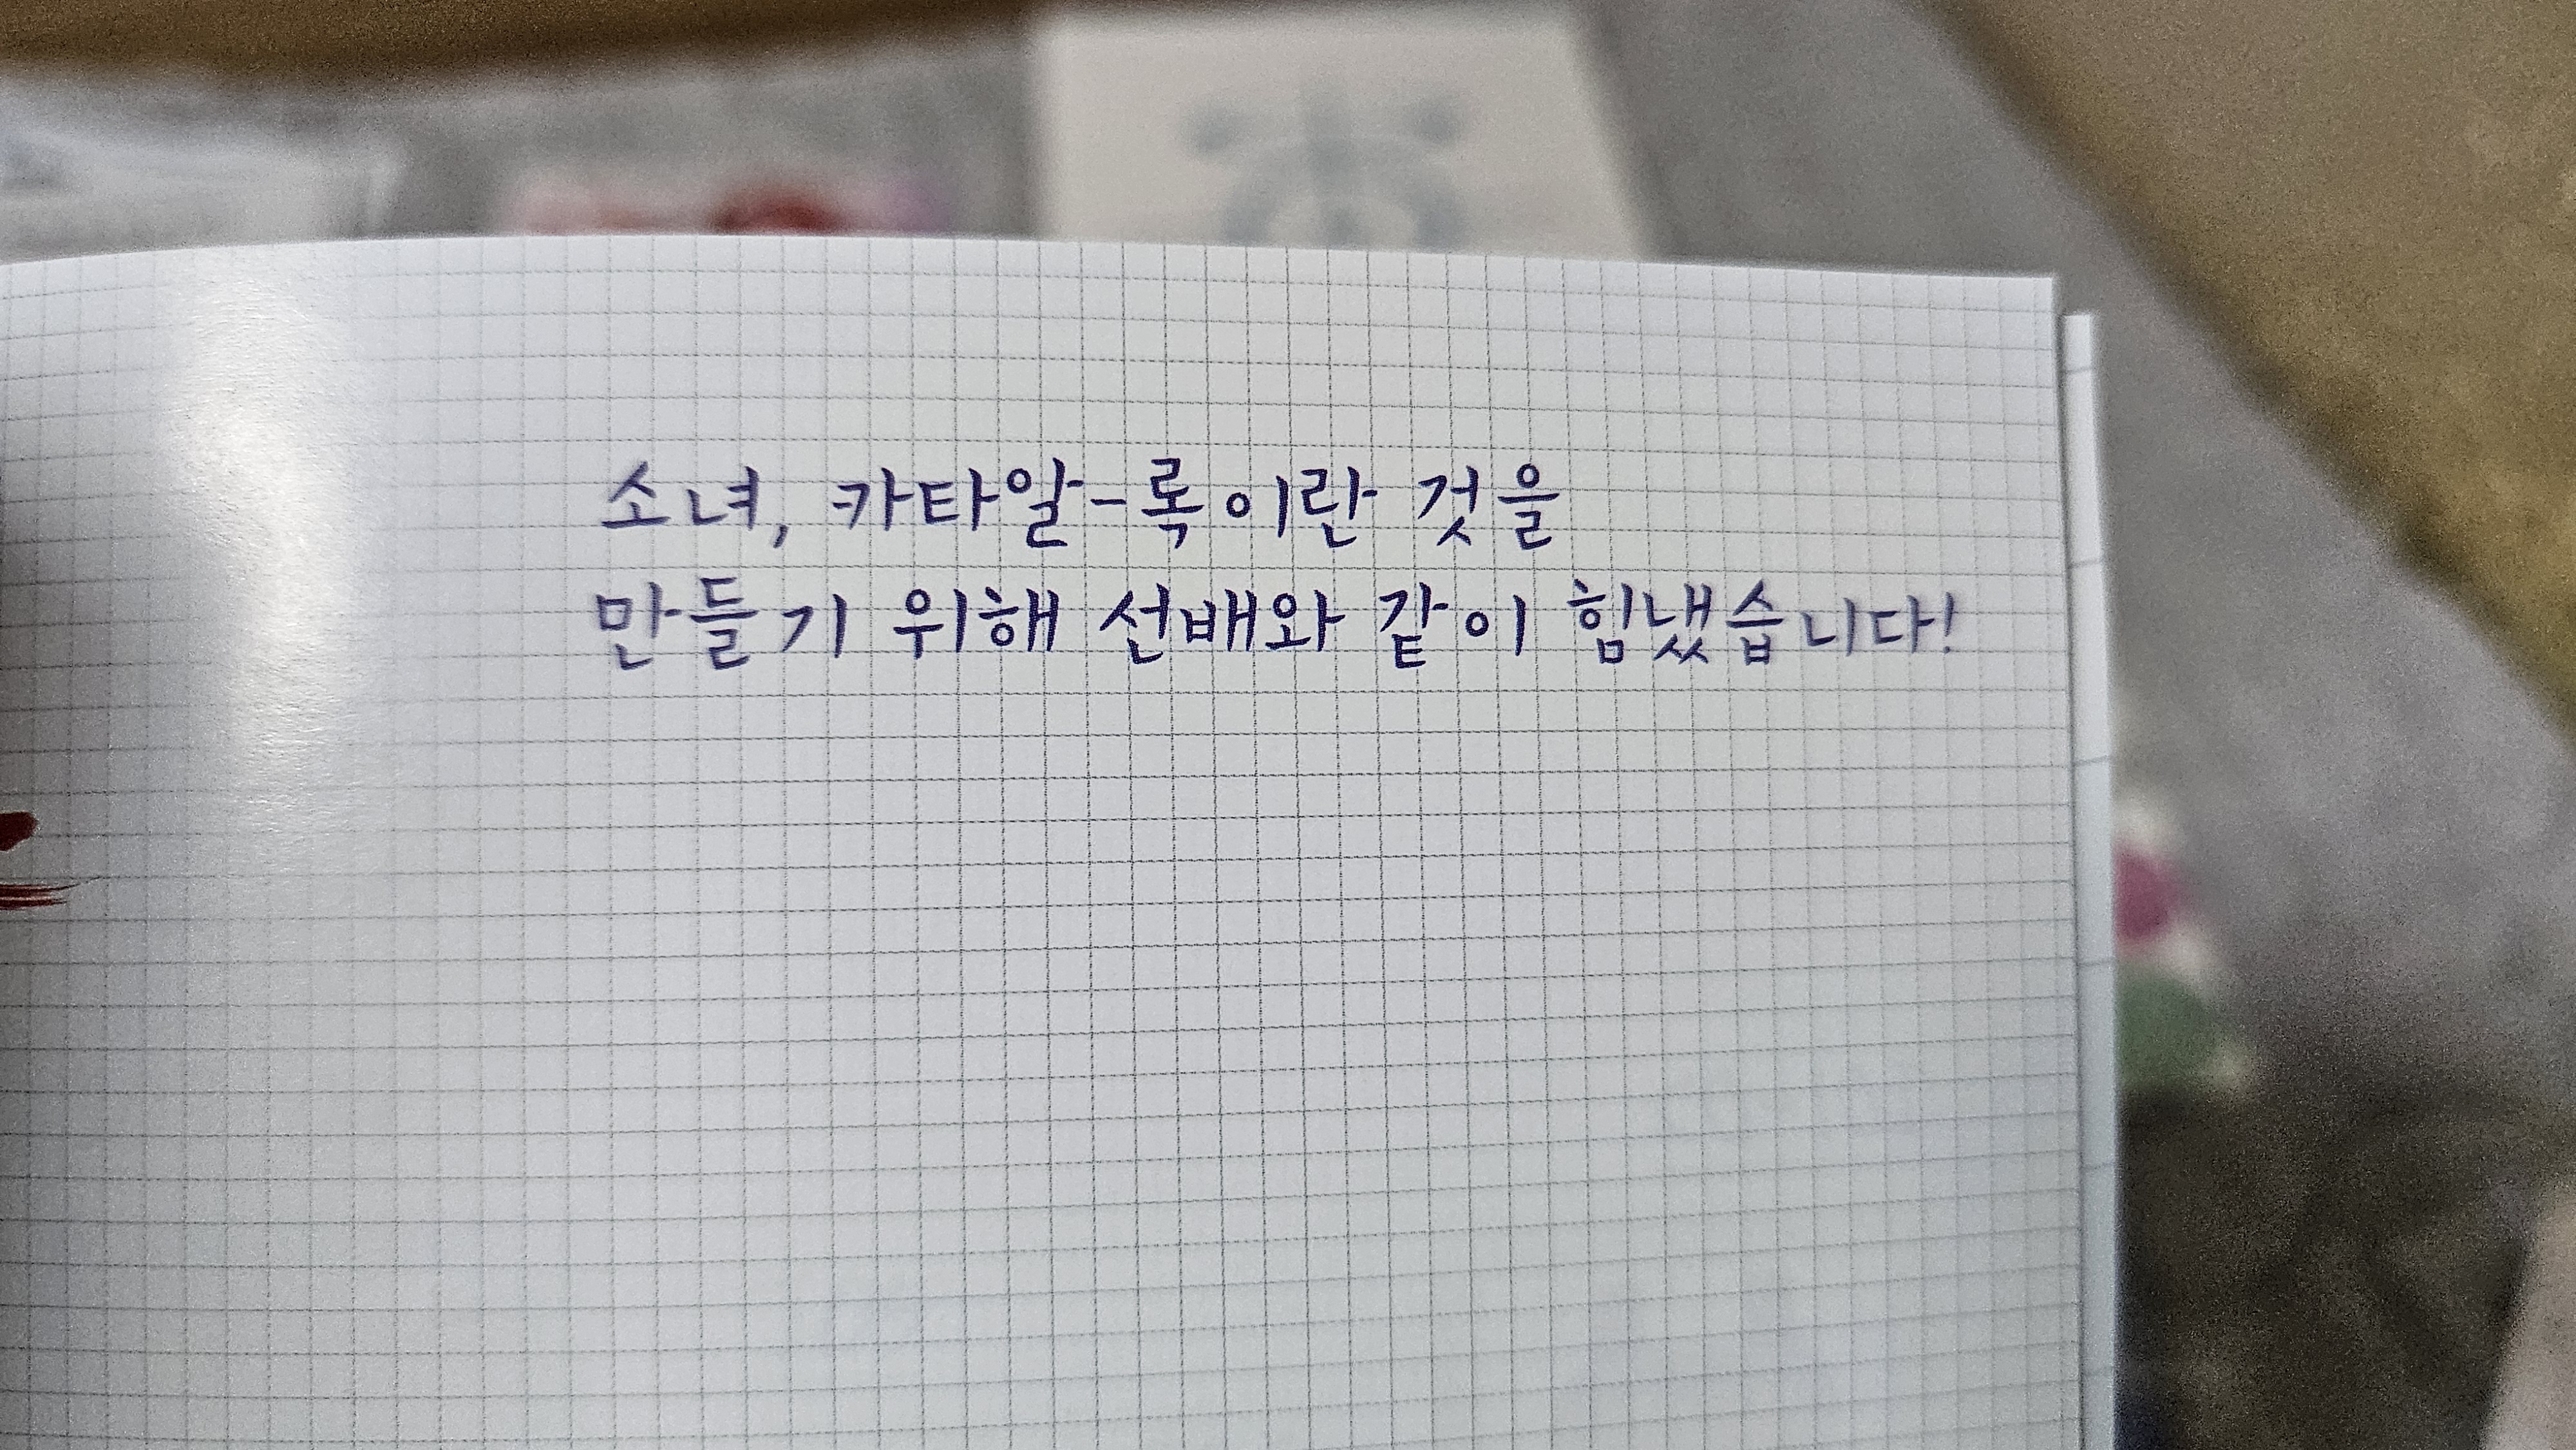 소녀, 카타알-록이란 것을
만들기 위해 선배와 같이 힘냈습니다!